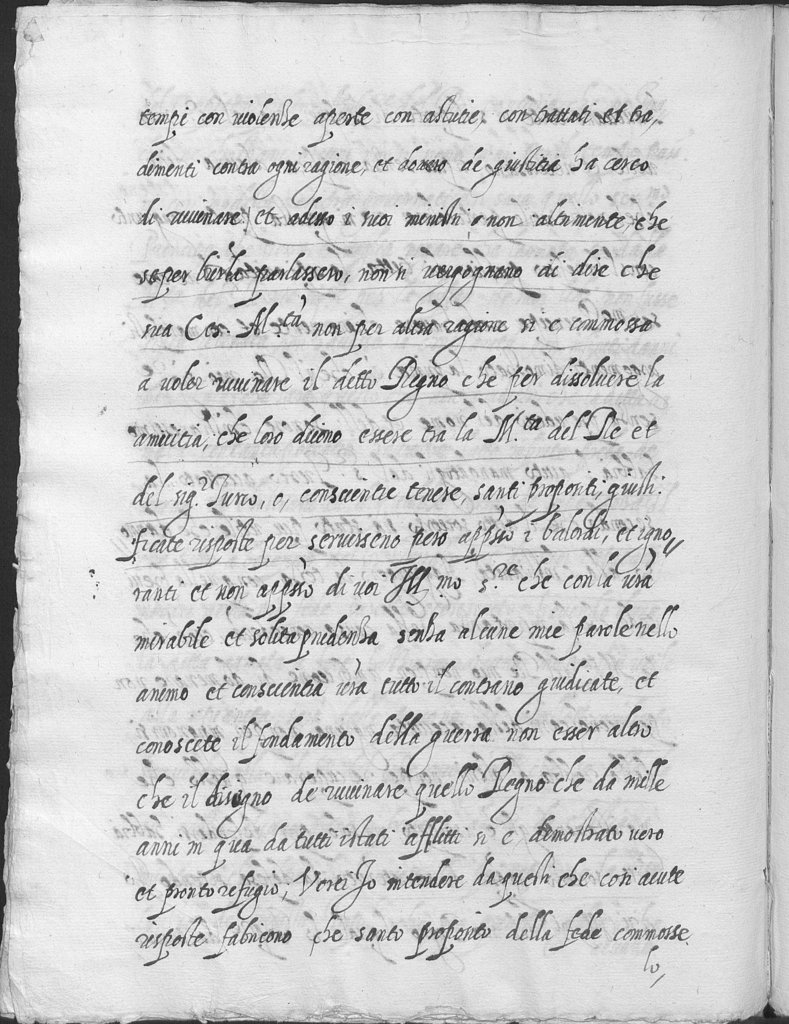 tempi con violenze aperte con astutie, con trattati et tra,
dimenti contra ogni ragione, et dovero de giustitia ha cerco
di ruuinare, et adesso i suoi ministri, non altrimente, che
se per burla parlassero, non si vergognano di dire che
sua Ces. M.tà non per altra ragione si e commossa
a voler ruuinare il detto Regno che per dissoluere la
amicitia, che loro dicono essere tra la M.tà del Re et
del sig.r Turco, o, conscientie tenere, santi propositi, giusti:
ficate risposte per seruirseno pero app̃sso i balordi, et igno,,
ranti et non app̃sso di voi Ill.mo s.re che con la vr̃a
mirabile et solita prudenza senza alcune mie parole nello
animo et conscientia vr̃a tutto il contrario giudicate, et
conoscete il fondamento della guerra non esser altro
che il disegno de ruuinare quello Regno che da mille
anni in qua da tutti i stati afflitti si e dimostrato vero
et pronto refugio, Vorei Io intendere da questi che cosi acute
risposte fabricono che santo proposito della fede commosse
lo,